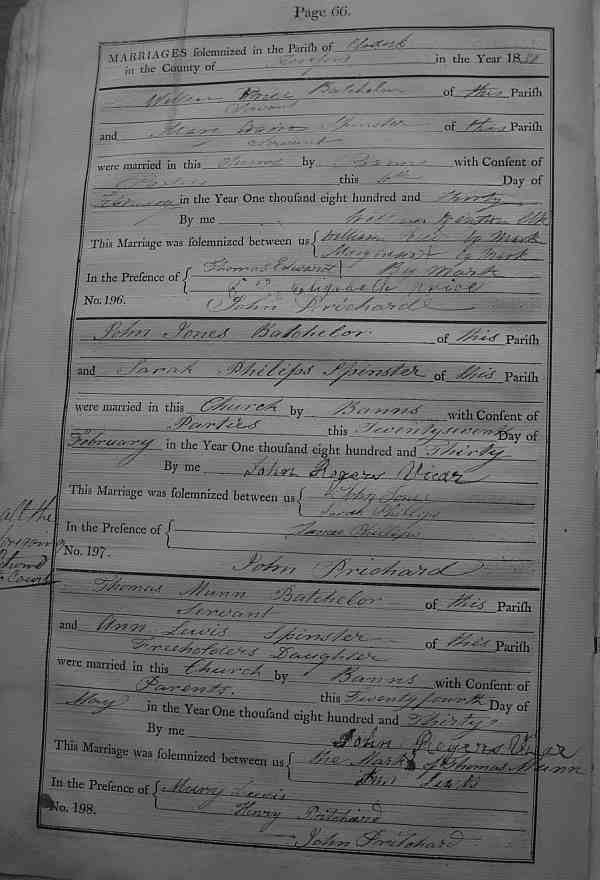 Page 66.
MARRIAGES solemnized in the Parish of Clodock
in the County of Hereford in the Year 1830
William Batchelor of this Parish
Servant
and Spinster of this Parish
Servant
were married in this Church by Banns with Consent of
Parties this Day of
February in the Year One thousand eight hundred and Thirty
By me
This Marriage was solemnized between us William by Mark
by Mark
In the Presence of Thomas Edwards By Mark
Price
No. 196. John Prichard
John Jones Batchelor of this Parish
and Sarah Philips Spinster of this Parish
were married in this Church by Banns with Consent of
Parties this Day of
February in the Year One thousand eight hundred and Thirty
By me John Rogers Vicar
This Marriage was solemnized between us John Jones
Sarah Phillips
In the Presence of Phillips
No. 197.
John Prichard
Thomas Munn Batchelor of this Parish
Servant
and Ann Lewis Spinster of this Parish
Freeholders Daughter
were married in this Church by Banns with Consent of
Parents. this Twentyfourth Day of
May in the Year One thousand eight hundred and Thirty
By me John Rogers Vicar
This Marriage was solemnized between us the Mark of Thomas Munn
Ann Lewis
In the Presence of Lewis
Henry Pritchard
No. 198.
John Pritchard